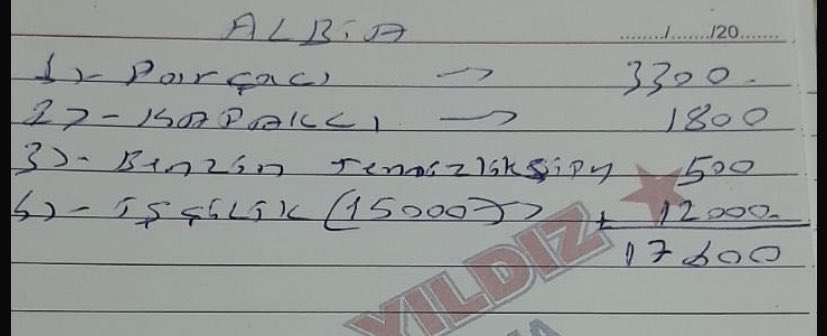 ALBiA
......./......./20.......
1)- Parçacı → 3300.
2)- KAPAKCI → 1800
3)- Benzin Temizlik 500
4)- işçiLiK (15000) + 12000.
17600
YILDIZ